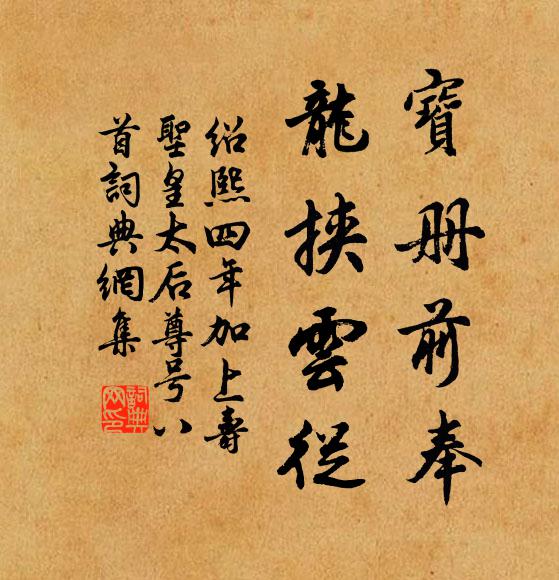 寶册前奉
龍挾雲從
紹熙四年加上壽
聖皇太后尊号八
首詞典網集
詞典
网印